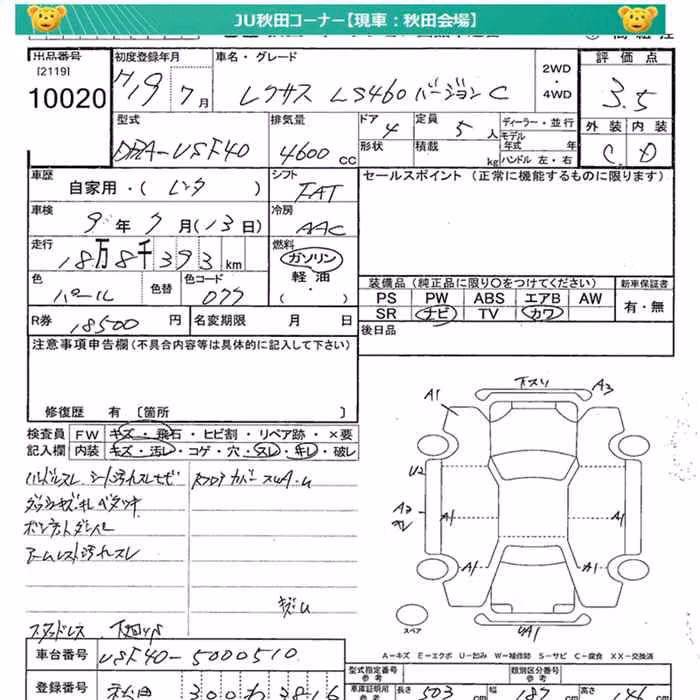 JU秋田コーナー【現車：秋田会場】
出品番号 初度登録年月 車名・グレード 2WD・4WD 評価点
[2119]
10020 H19 7月 レクサス LS460 バージョンC 3.5
型式 排気量 ドア 定員 ディーラー・並行 外装 内装
DBA-USF40 4600 cc 4 5人 モデル年式 年
形状 積載 kg ハンドル 左・右 C D
車歴 自家用・( レンタ ) シフト FAT セールスポイント (正常に機能するものに限ります)
車検 9年 7月(13日) 冷房 AAC
走行 18万8千393km 燃料 ガソリン 軽油 ( ・ )
色 パール 色替 色コード 077
装備品 (純正品に限り〇をつけてください) 新車保証書
PS PW ABS エアB AW 有・無
SR ナビ TV カワ
R券 18500円 名変期限 月 日 後日品
注意事項申告欄 (不具合内容等は具体的に記入して下さい)
修復歴 有 [箇所 ]
検査員 FW キズ・飛石・ヒビ割・リペア跡・×要
記入欄 内装 キズ・汚レ・コゲ・穴・スレ・キレ・破レ
ハンドルスレ シート汚れスレ
ダッシュキズ
ボンネットダンパー
アームレスト汚れスレ
キズU
スタッドレス
下スリ
A1 A3
U2
A2
A1 A1
A1 A1
UA1
スペア
A－キズ E－エクボ U－凹み W－補修跡 S－サビ C－腐食 XX－交換済
車台番号 USF40-5000510
型式指定番号 類別区分番号
参考 参考
登録番号 秋田 300 わ 3816
車庫証明用 参考 長さ 503 cm 幅 187 cm 高さ